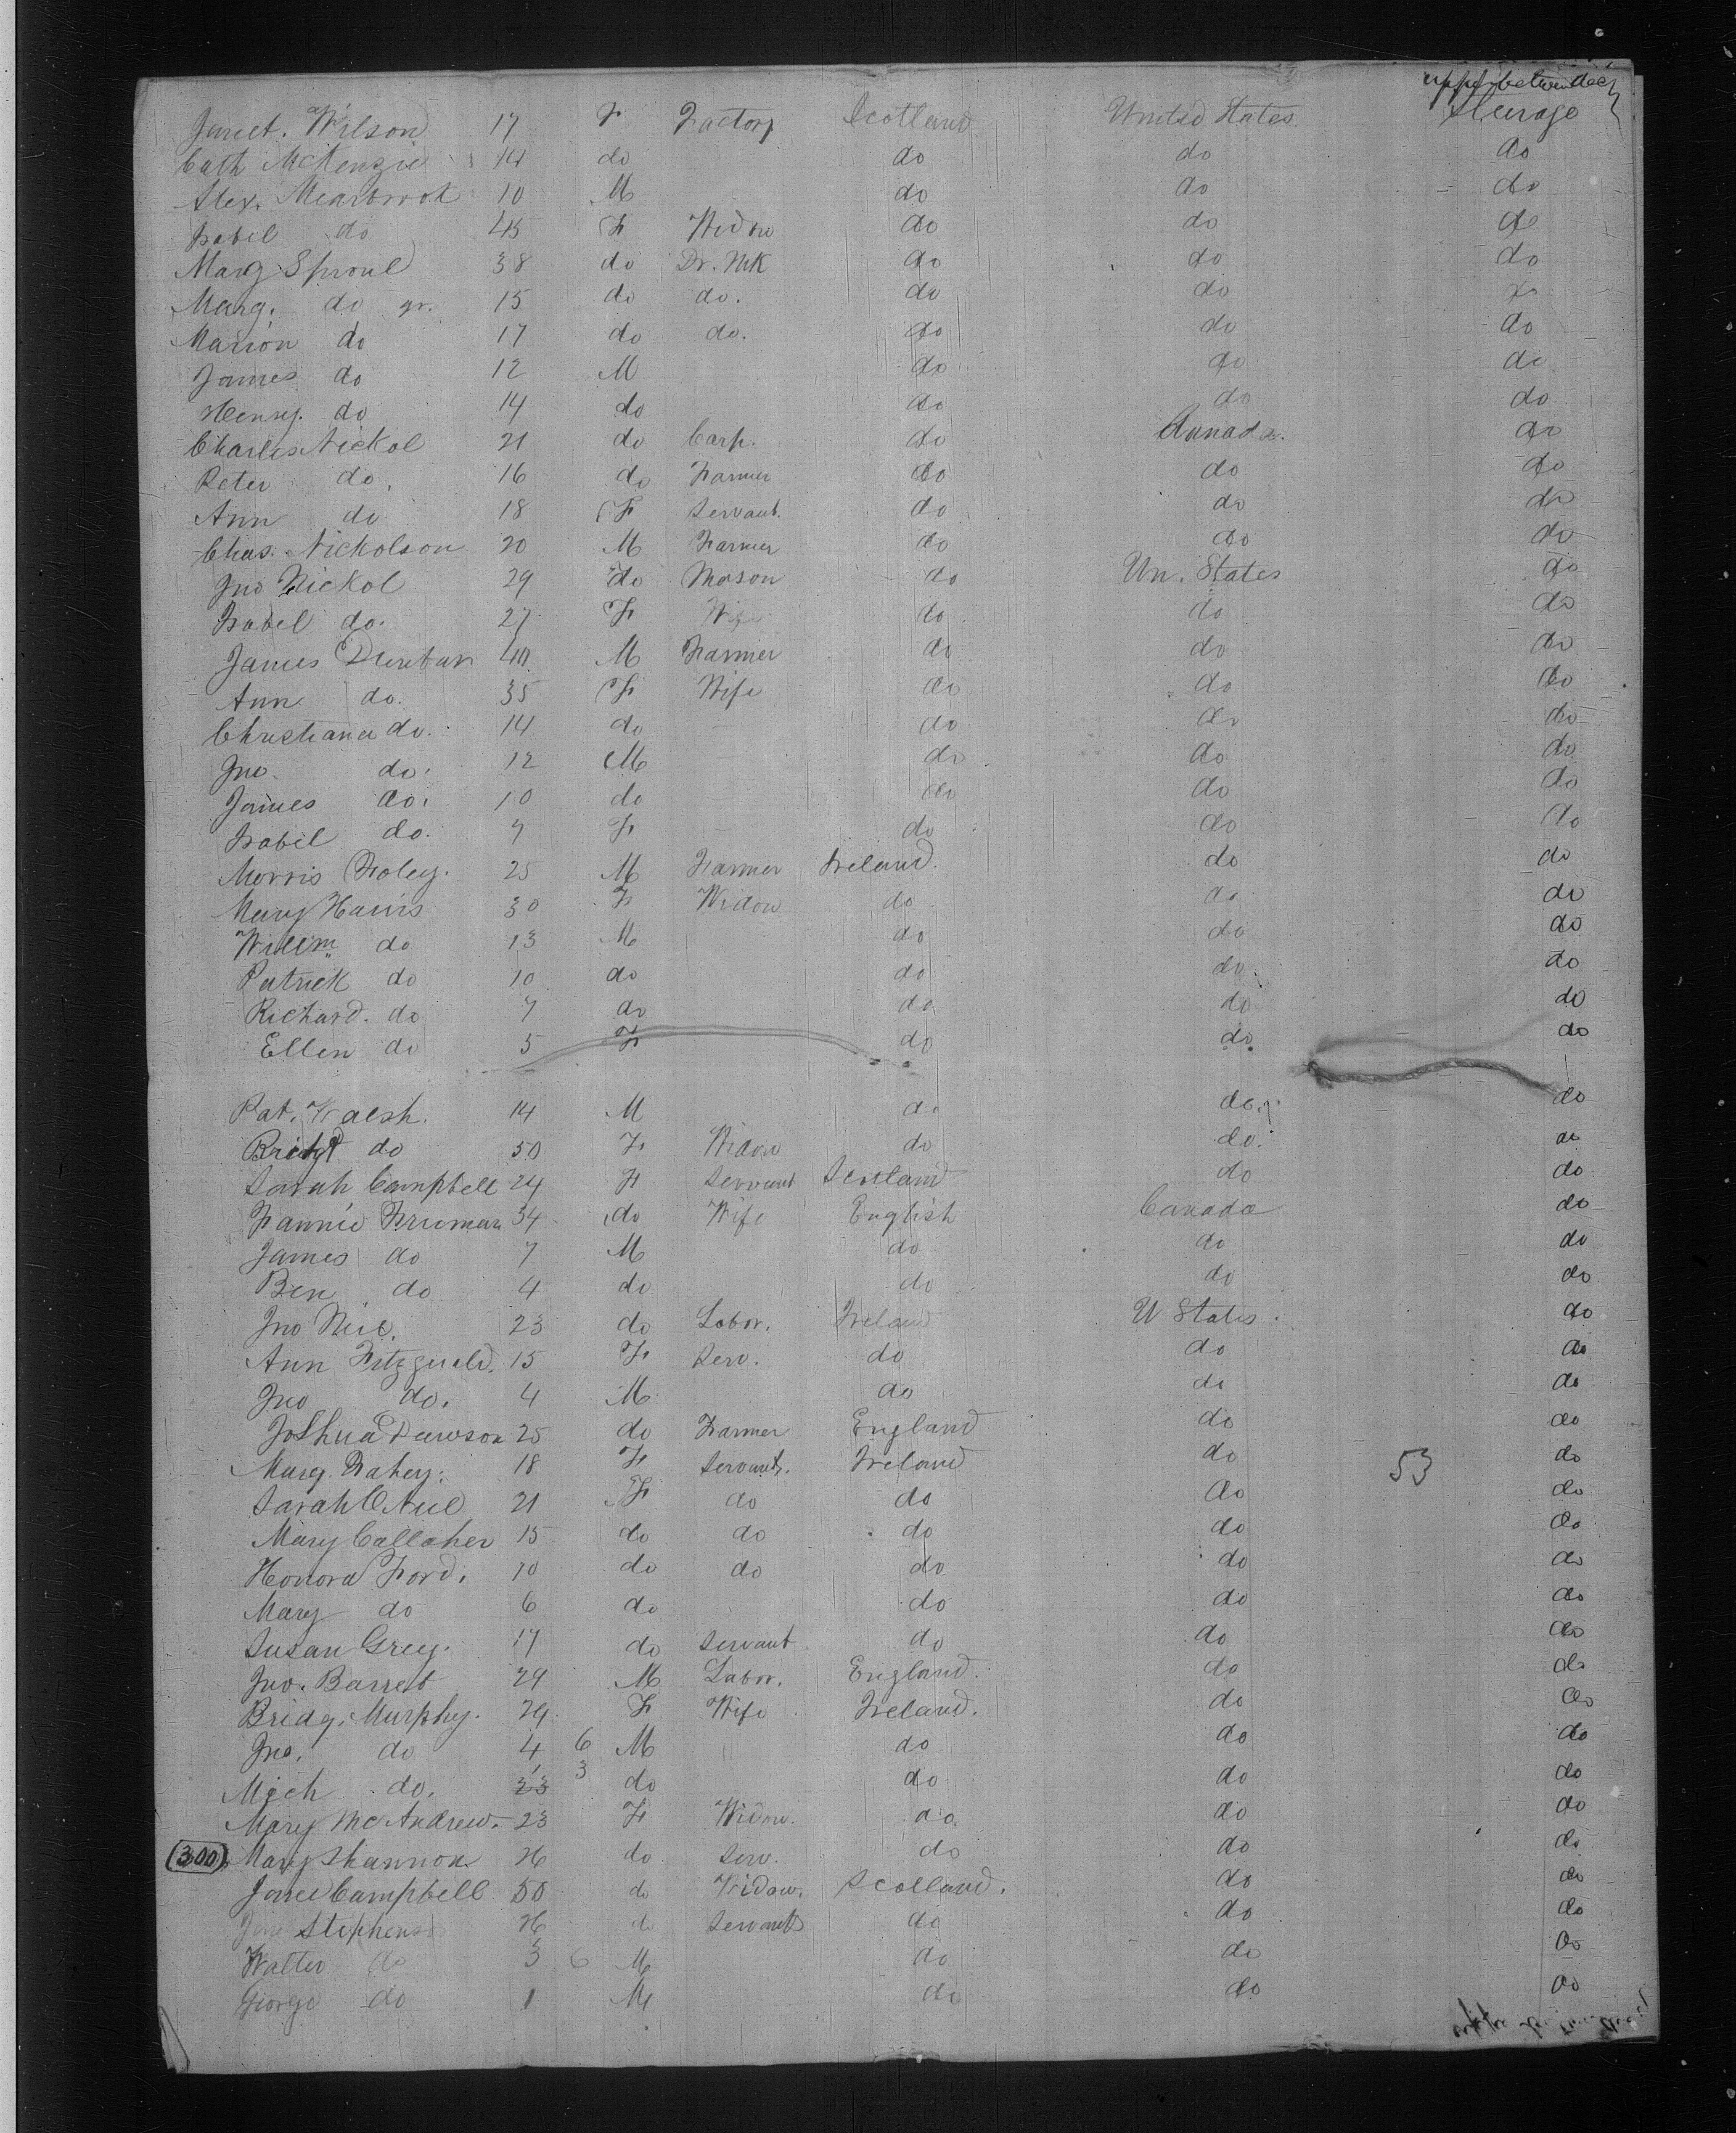 upper between decks
Janet. Wilson 17 F Factory Scotland United States Steerage
Cath McKenzie 14 do do do do
Alex. Mearbrook 10 M do do do
Isabel do 45 F Widow do do do
Marg Sproul 38 do Dr. Mk do do do
Marg. do gr. 15 do do. do do do
Marion do 17 do do. do do do
James do 12 M do do do
Henry. do 14 do do do do
Charles Nickol 21 do Carp. do Canada. do
Peter do. 16 do Farmer do do do
Ann do 18 F Servant. do do do
Chas. Nickolson 20 M Farmer do do do
Jno Nickol 29 do Mason do Un. States do
Isabel do. 27 F Wife do do do
James Dunbar 40 M Farmer do do do
Ann do. 35 F Wife do do do
Christiana do. 14 do do do do
Jno. do. 12 M do do do
James do. 10 do do do do
Isabel do. 7 F do do do
Morris Foley. 25 M Farmer Ireland. do do
Mary Harris 30 F Widow do do do
Willm do 13 M do do do
Patrick do 10 do do do do
Richard. do 7 do do do do
Ellen do 5 F do do do
Pat. Walsh. 14 M do do. do
Bridgt do 50 F Widow do do. do
Sarah Campbell 24 F Servant Scotland do do
Fannie Freeman 34 do Wife English Canada do
James do 7 M do do do
Ben do 4 do do do do
Jno Neil. 23 do Labor. Ireland U States. do
Ann Fitzgerald. 15 F Serv. do do do
Jno do. 4 M do do do
Joshua Dawson 25 do Farmer England do do
Marg. Fahey. 18 F Servant. Ireland do 53 do
Sarah O Neil 21 F do do do do
Mary Callaher 15 do do do do do
Honora Ford. 10 do do do do do
Mary do 6 do do do do
Susan Grey. 17 do Servant do do do
Jno. Barrett 24 M Labor. England. do do
Bridg. Murphy. 24 F Wife Ireland. do do
Jno. do 4 6 M do do do
Mich do. 3 do do do do
Mary McAndrew. 23 F Widow. do. do do
(300) Mary Shannon 26 do Serv. do do do
Jane Campbell 50 do Widow. Scotland. do do
Jane Stephens 26 do Servant do do do
Walter do 3 6 M do do do
George do 1 M do do do